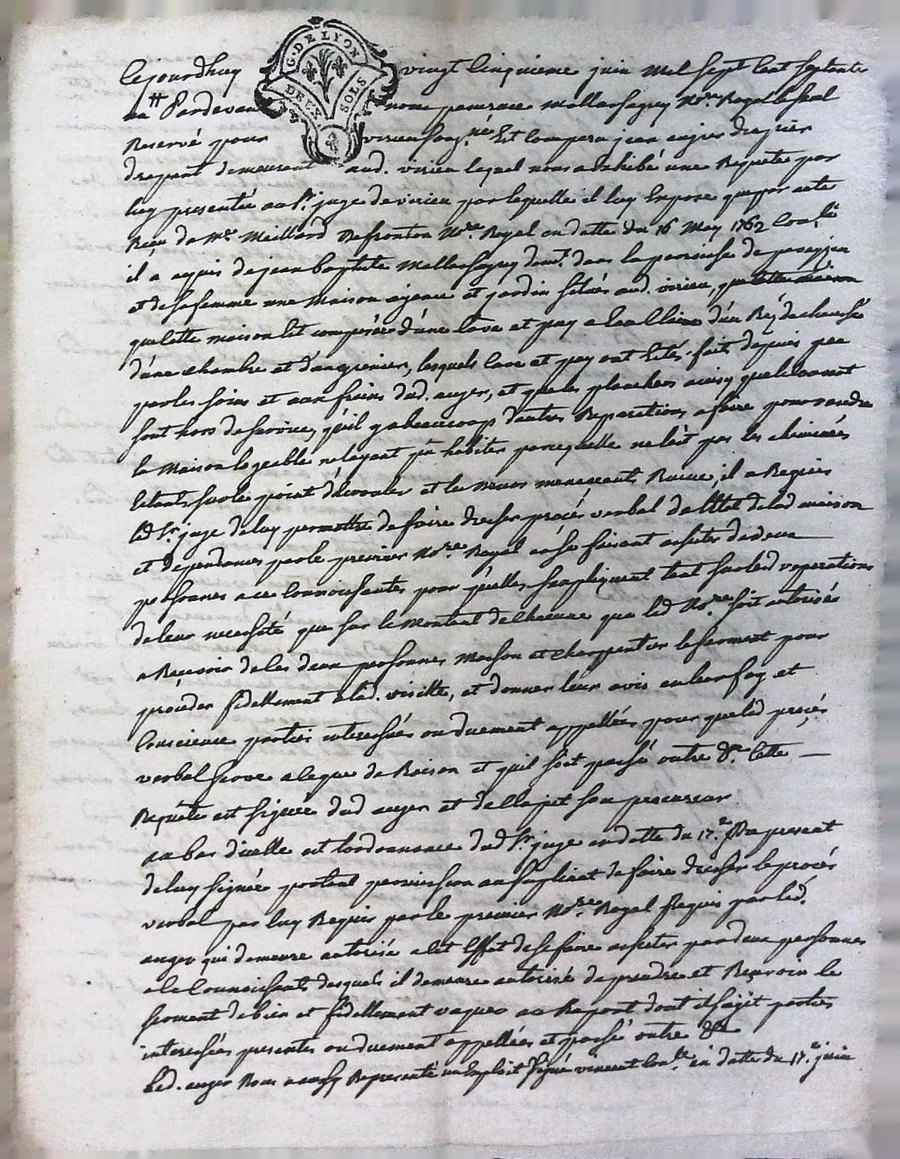 G. DE LYON
DEUX SOLS
Cejourdhuy vingt Cinquieme juin Mil sept Cent septante
pardevant nous Nore Royal
Reservé pour virieu Et Comparu jean auger draguier
drapant demeurant aud. virieu lequel nous a Exhibé une Requete par
luy presentée au Sr. juge de virieu par laquelle il luy Expose que par acte
Receu de Me Maillard Nore Royal en datte du 16 May 1762 Conlé
il a aquis de jean baptiste Mallen dans la paroisse de
et de sa femme une Maison aisance et jardin situés aud. virieu, que cette maison
que cette maison Est composée d'une Cave et d'un Réz de chaussé
d'une chambre et d'un grenier, lesquels Cave et ont Etés fait depuis peu
par les soins et aux fraix dud. auger, et que les planchers
sont hors de service, qu'il y a beaucoup d'autres Reparations a faire pour rendre
la Maison logeable ne layant pû habiter parcequelle ne l'est pas les cheminées
Etant sur le point d'écrouler et les murs menacent Ruine, il a Requis
led Sr. juge de luy permettre de faire dresser procés verbal de l'Etat de lad maison
et dependances par le premier Nore Royal en se faisant assister de deux
personnes a ce Connoissantes pour qu'elles sexpliquent tant sur led reparations
de leur necessité que sur le Montant de chacune que led Nore soit autorisés
a Recevoir de les deux personnes Masson et charpentier le serment pour
procéder fidellement a lad. visitte, et donner leur avis en leur foy et
Conscience parties interessées ou duement appellées pour que led procés
verbal serve a ce que de Raison et quil soit passé outre &a. Cette
Requete est signée dud auger et de son procureur
au bas d'icelle est lordonnance dud Sr. juge en datte du 17.e du present
de luy signée portant permission au supliant de faire dresser le procés
verbal par luy Requis par le premier Nore Royal Requis par led.
auger qui demeure autorisé a cet Effet de se faire assister par deux personnes
a ce Connoissant desquels il demeure autorisé de prendre et Recevoir le
serment de bien et fidellement vaquer au Raport dont il sagit parties
interessées presentes ou duement appellées et passé outre &a
Led. auger Nous a aussy Representé un Exploit signé vincent Conlé. en datte du 17.e juin